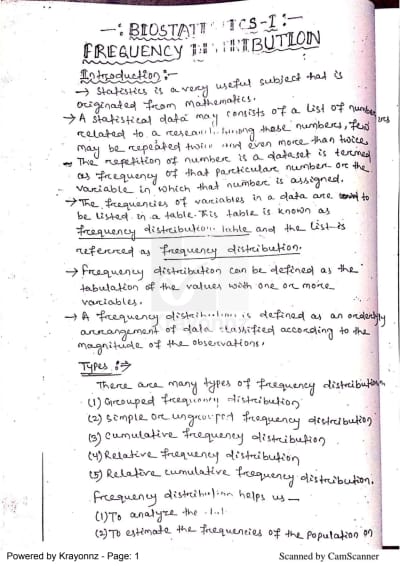 -: BIOSTATISTICS-I
FREQUENCY DISTRIBUTION
Introduction:-
→ Statistics is a very useful subject that is
originated from mathematics.
→ A statistical data may consists of a list of numbers
related to a research. Among those numbers, few
may be repeated twice and even more than twice
- The repetition of number is a dataset is termed
as frequency of that particular number or the
variable in which that number is assigned.
→ The frequencies of variables in a data are to
be listed in a table. This table is known as
frequency distribution table and the list is
referred as frequency distribution.
→ Frequency distribution can be defined as the
tabulation of the values with one or more
variables.
→ A frequency distribution is defined as an orderly
arrangement of data classified according to the
magnitude of the observations.
Types :⇒
There are many types of frequency distribution
(1) Grouped frequency distribution
(2) Simple or ungrouped frequency distribution
(3) Cumulative frequency distribution
(4) Relative frequency distribution
(5) Relative cumulative frequency distribution.
Frequency distribution helps us —
(1) To analyze the
(2) To estimate the frequencies of the population on
Powered by Krayonnz - Page: 1
Scanned by CamScanner